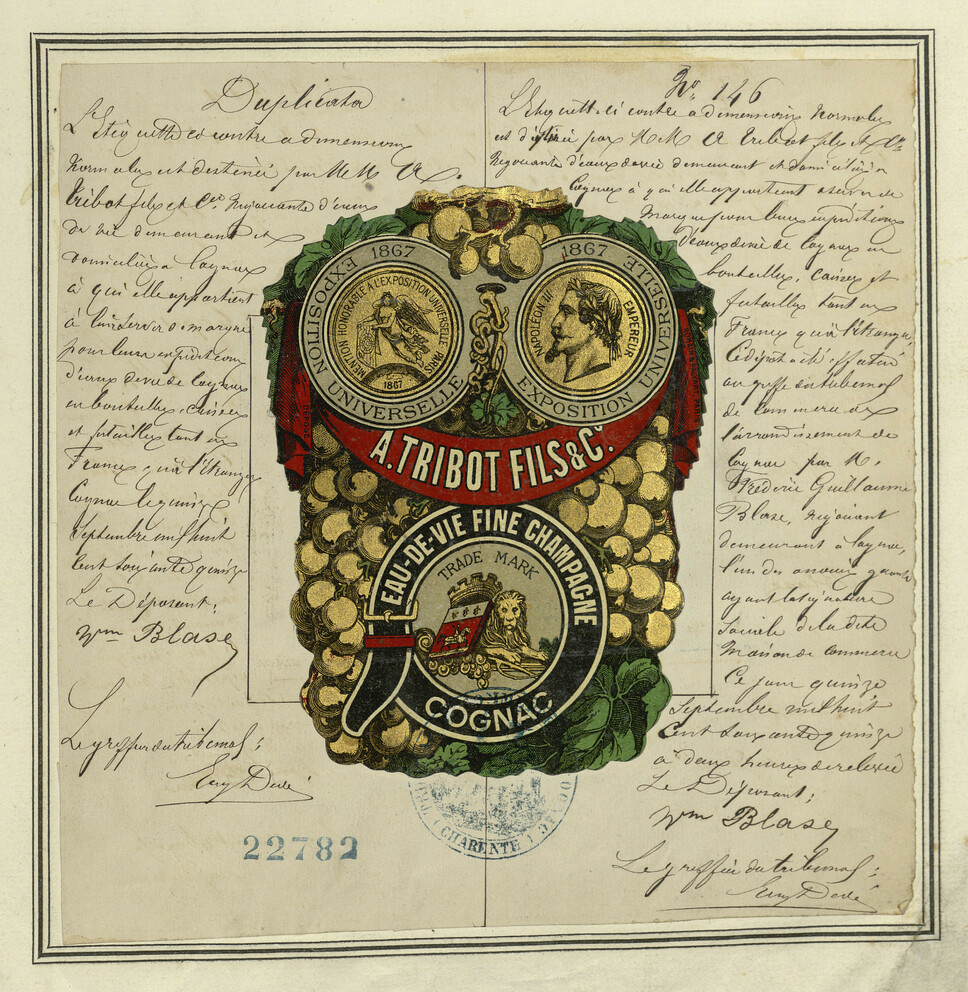 Duplicata
L'Etiquette ci contre a dimensions
Normales est destinée par MM A.
Tribot fils et Cie Negociants d'eaux
de vie demeurant et
domiciliés a Cognac
à qui elle appartient
à leur servir de marque
pour leurs expeditions
d'eaux de vie de Cognac
en bouteilles, caisses
et futailles tant en
France qu'à l'étranger
Cognac le quinze
Septembre mil huit
cent soixante quinze
Le Déposant;
Wm Blase
Le greffier du tribunal;
Eug Dedé
22782
No 146
L'Etiquette ci contre a dimensions Normales
est destinée par MM A Tribot fils et Cie
Negociants d'eaux de vie demeurant et domiciliés à
Cognac à qui elle appartient a servir de
Marque pour leurs expeditions
d'eaux de vie de Cognac en
bouteilles, caisses et
futailles tant en
France qu'à l'étranger,
au greffe du tribunal
de Commerce de
l'arrondissement de
Cognac par M.
Frédéric Guillaume
Blase, negociant
demeurant à Cognac,
l'un des associés gerants
ayant la signature
Sociale de la dite
Maison de Commerce
Ce jour quinze
Septembre mil huit
Cent soixante quinze
à deux heures de relevée
Le Déposant;
Wm Blase
Le greffier du tribunal;
Eug Dedé
1867
EXPOSITION UNIVERSELLE
MENTION HONORABLE A L'EXPOSITION UNIVERSELLE PARIS
1867
1867
EXPOSITION UNIVERSELLE
NAPOLEON III EMPEREUR
DÉPOSÉ
A. TRIBOT FILS & Co.
EAU-DE-VIE FINE CHAMPAGNE
TRADE MARK
COGNAC
(CHARENTE)